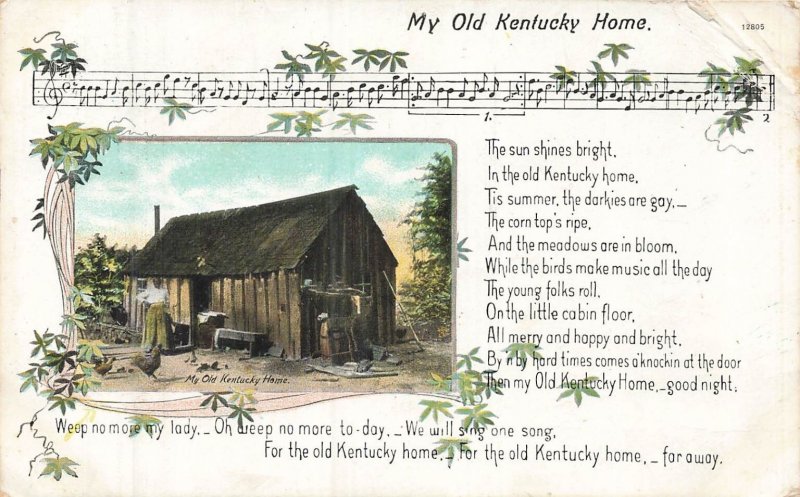 My Old Kentucky Home.
12805
1.
2
The sun shines bright,
In the old Kentucky home,
Tis summer, the darkies are gay,_
The corn top's ripe,
And the meadows are in bloom,
While the birds make music all the day
The young folks roll,
On the little cabin floor,
All merry and happy and bright,
By'n by hard times comes a'knockin at the door
Then my Old Kentucky Home,_good night;
My Old Kentucky Home.
Weep no more my lady,_ Oh weep no more to-day,_ We will sing one song,
For the old Kentucky home,_ For the old Kentucky home,_ far away.